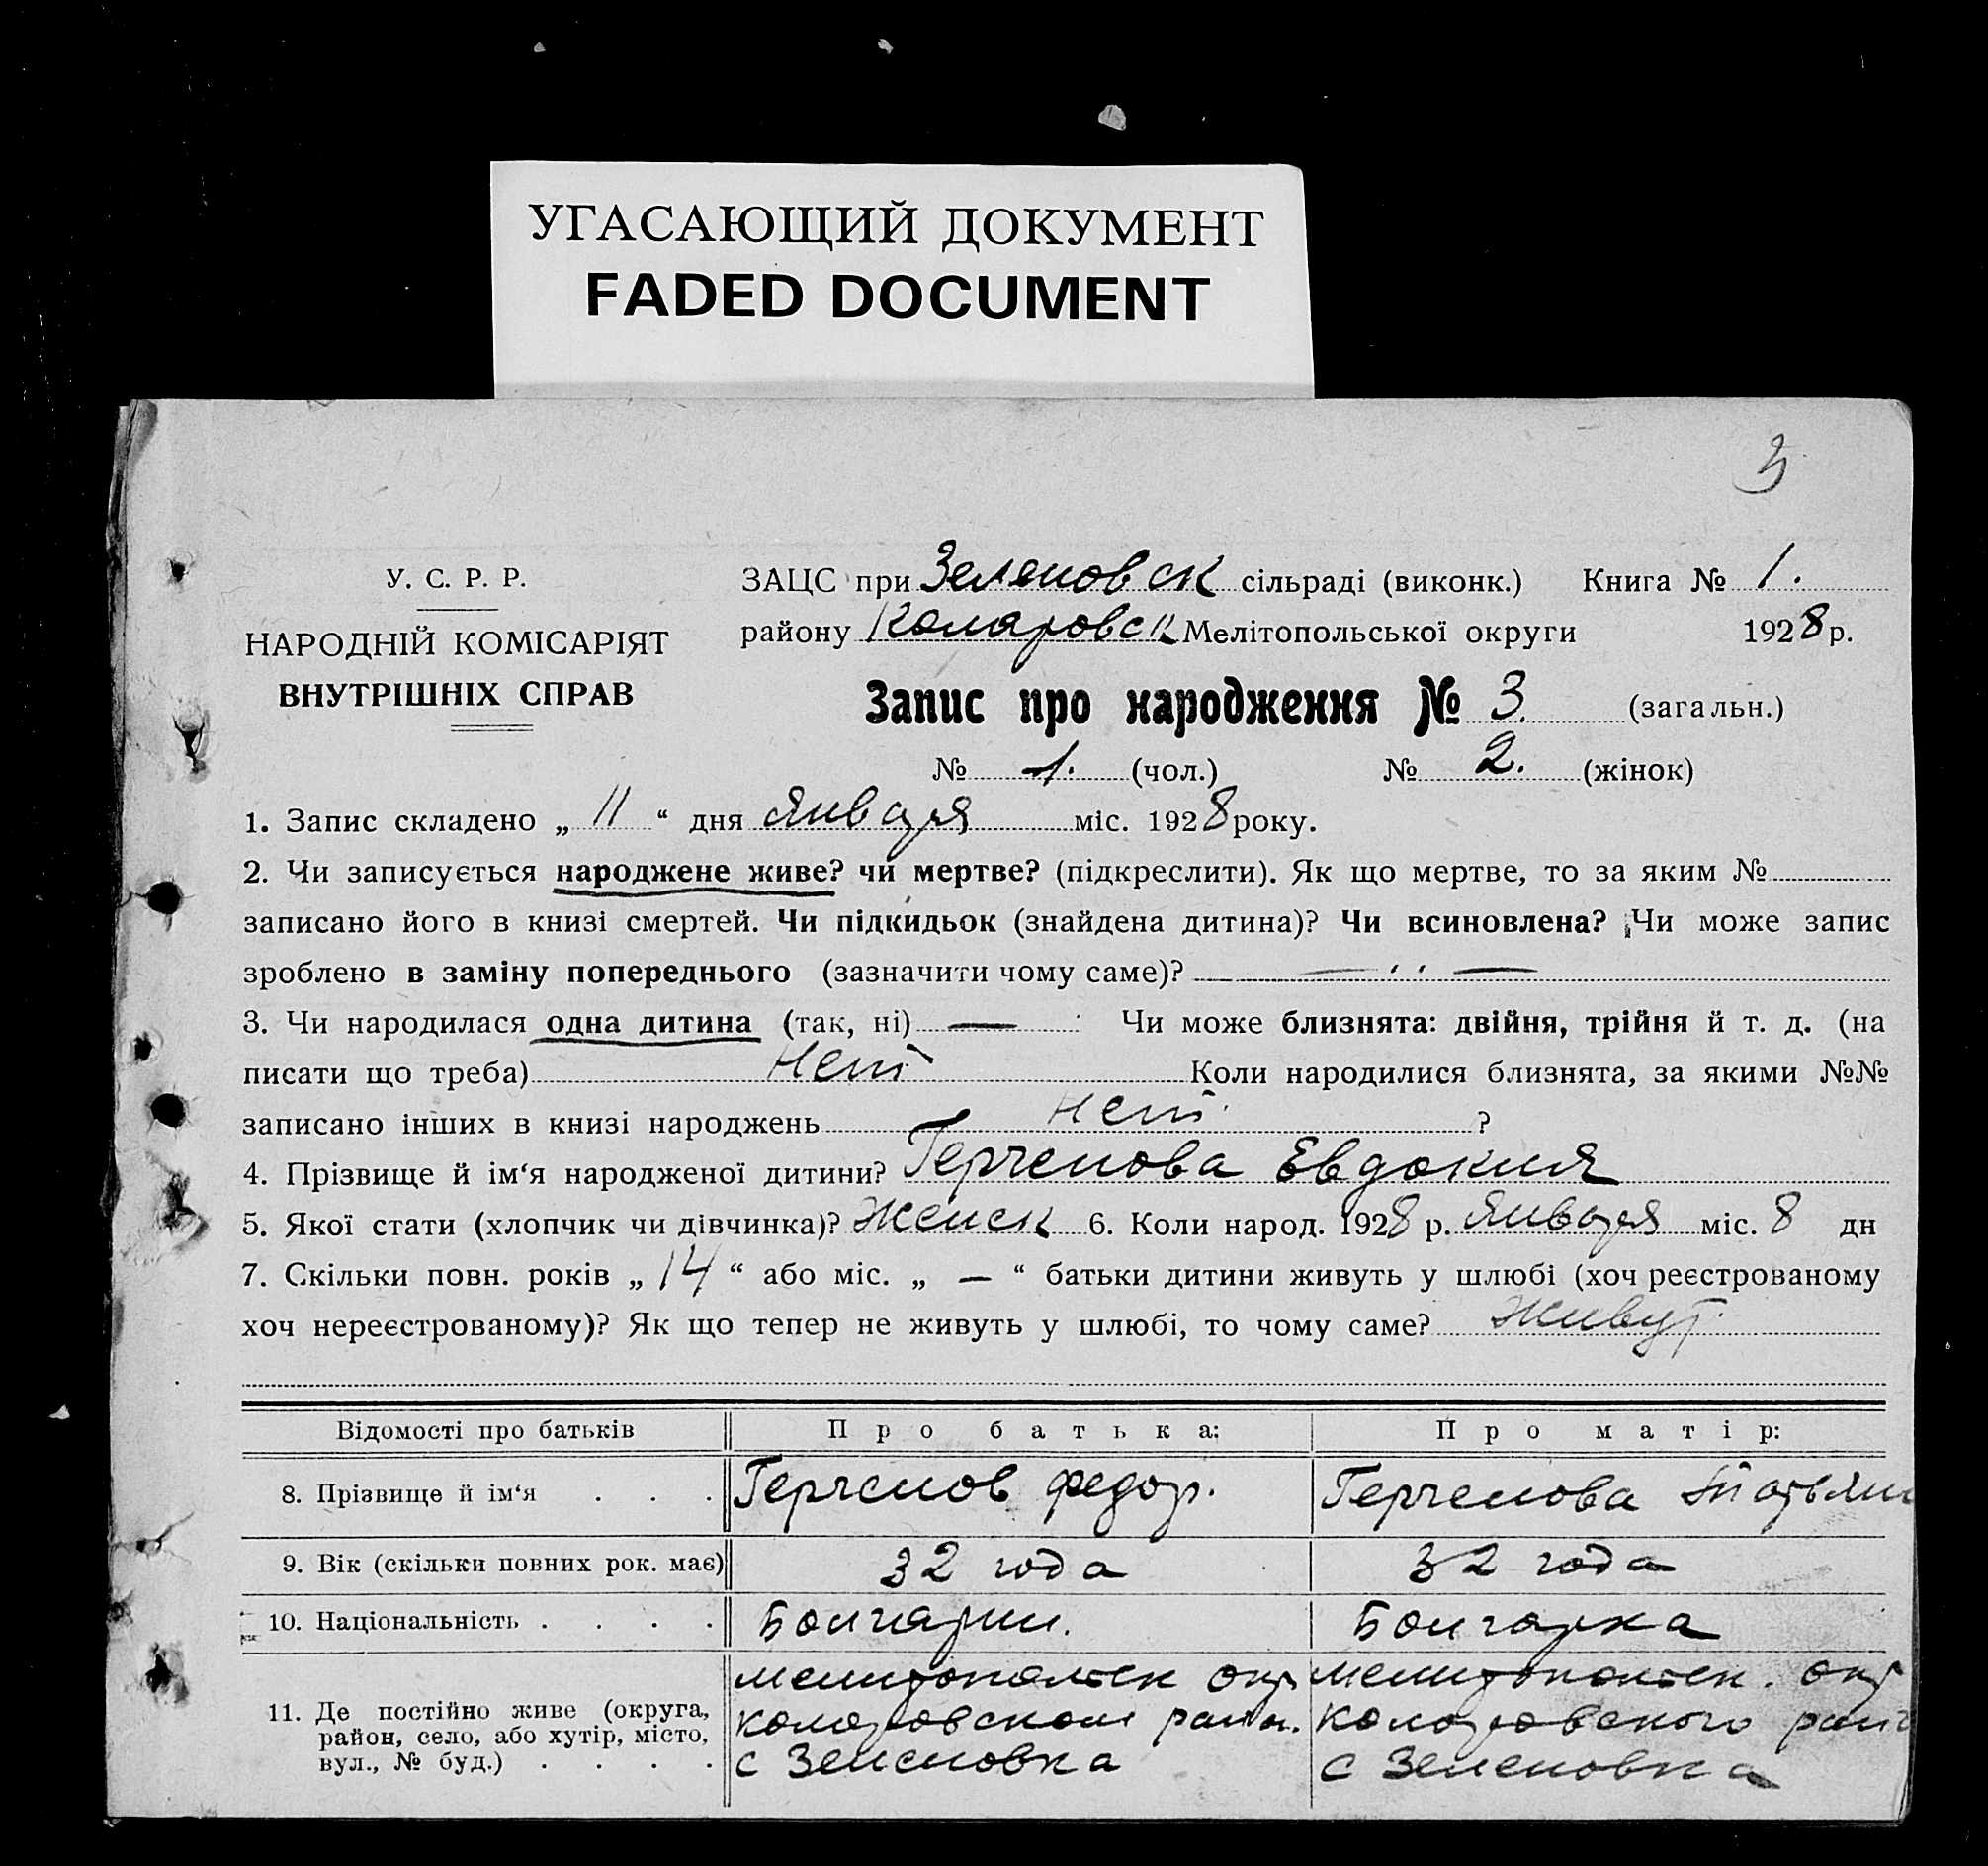 УГАСАЮЩИЙ ДОКУМЕНТ
FADED DOCUMENT
3
У. С. Р. Р.
НАРОДНІЙ КОМІСАРІЯТ
ВНУТРІШНІХ СПРАВ
ЗАЦС при Зеленовск сільраді (виконк.) Книга № 1.
району Коларовск Мелітопольської округи 1928 р.
Запис про народження № 3. (загальн.)
№ 1. (чол.) № 2. (жінок)
1. Запис складено „ 11 “ дня января міс. 1928 року.
2. Чи записується народжене живе? чи мертве? (підкреслити). Як що мертве, то за яким №
записано його в книзі смертей. Чи підкидьок (знайдена дитина)? Чи всиновлена? Чи може запис
зроблено в заміну попереднього (зазначити чому саме)? —
3. Чи народилася одна дитина (так, ні) — Чи може близнята: двійня, трійня й т. д. (на
писати що треба) Нет Коли народилися близнята, за якими №№
записано інших в книзі народжень Нет. ?
4. Прізвище й ім‘я народженої дитини? Герченова Евдокия
5. Якої стати (хлопчик чи дівчинка)? Женск 6. Коли народ. 1928 р. января міс. 8 дн
7. Скільки повн. років „ 14 “ або міс. „ — “ батьки дитини живуть у шлюбі (хоч реєстрованому
хоч нереєстрованому)? Як що тепер не живуть у шлюбі, то чому саме? Живут.
Відомості про батьків Про батька: Про матір:
8. Прізвище й ім‘я . . . Герченов Федор. Герченова Татьяна
9. Вік (скільки повних рок. має) 32 года 32 года
10. Національність . . . . Болгарин. Болгарка
11. Де постійно живе (округа, район, село, або хутір, місто, вул., № буд.) . . . .
Мелитопольск окр
Коларовском район.
с Зеленовка
Мелитопольск. окр
Коларовского
с Зеленовка